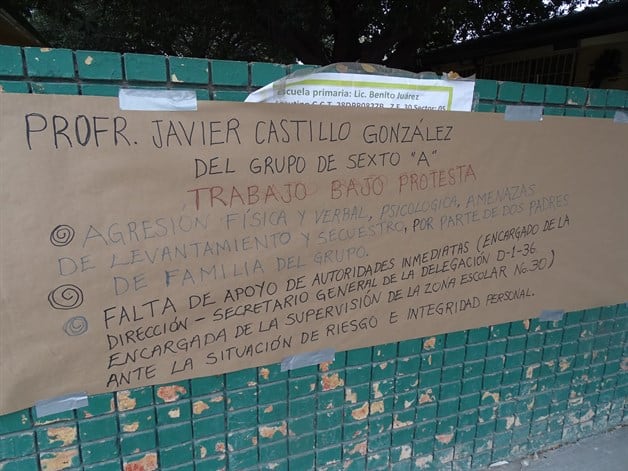 Escuela primaria: Lic. Benito Juárez
PROFR. JAVIER CASTILLO GONZÁLEZ
DEL GRUPO DE SEXTO "A"
TRABAJO BAJO PROTESTA
AGRESIÓN FÍSICA Y VERBAL, PSICOLOGICA, AMENAZAS
DE LEVANTAMIENTO Y SECUESTRO, POR PARTE DE DOS PADRES
DE FAMILIA DEL GRUPO.
FALTA DE APOYO DE AUTORIDADES INMEDIATAS (ENCARGADO DE LA
DIRECCIÓN - SECRETARIO GENERAL DE LA DELEGACIÓN D-1-36
ENCARGADA DE LA SUPERVISIÓN DE LA ZONA ESCOLAR No. 30)
ANTE LA SITUACIÓN DE RIESGO E INTEGRIDAD PERSONAL.